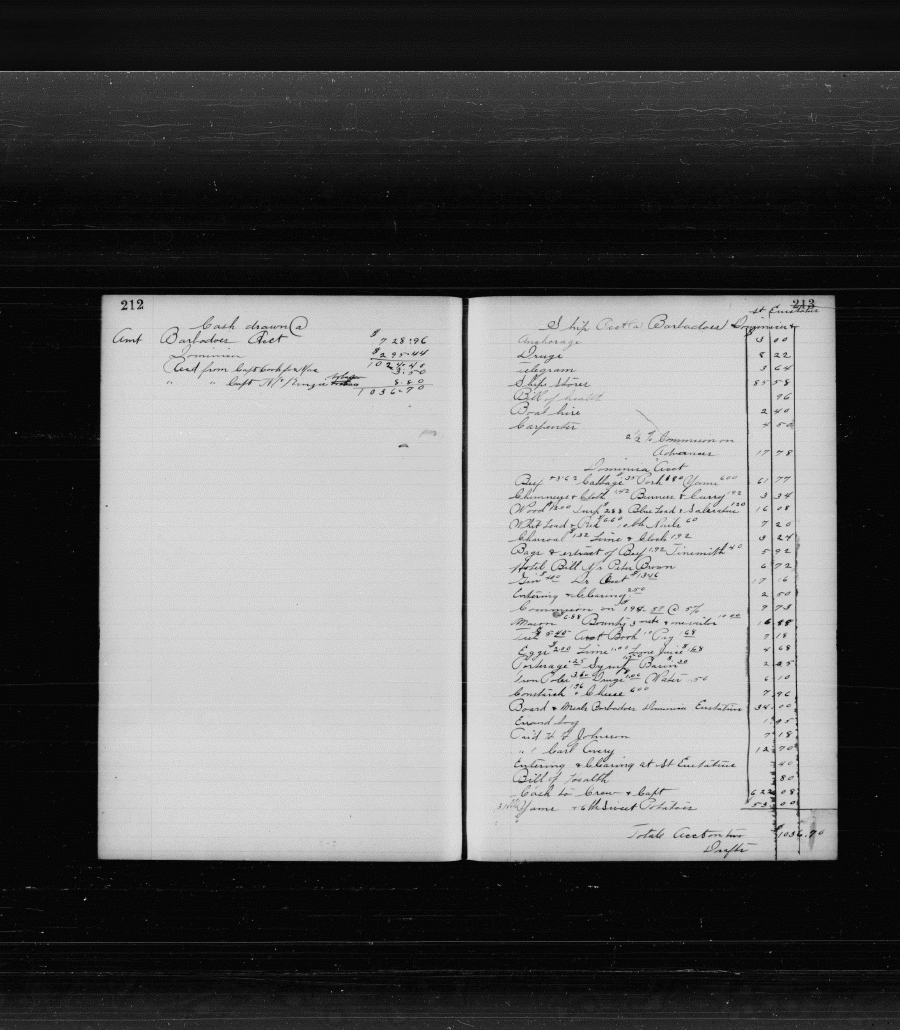 212
Cash drawn @
Amt Barbadoes Acct $728.96
Dominica $295.44
1024.40
Recd from Capt Cook for 3.50
" " Capt 8.80
1036.70
213
St Eustatius
Ship Acct @ Barbadoes Dominica &
Anchorage 3 00
Drugs 8 22
Telegram 3 64
Ships Stores 85 58
Bill of health 96
Boat hire 2 40
Carpenter 4 50
2 1/2 % Commission on
Advances 17 78
Dominica Acct
Beef $3.62 Cabbage 35 Pork $8.80 Yams 600 61 77
Chimneys & Cloth 142 Burners & Curry 192 3 34
Wood $1200 288 Blue Lead & Saleratus 120 16 08
Whit Lead & 10 lb Nails 60 7 20
Charcoal $1.32 Lime & Clock 192 3 24
Bags & extract of Beef 1.92 Tinsmith 40 5 92
Hotel Bill Peter Brown 6 72
Gin Dr 17 16
Entering & Clearing 250 2 50
Commission on 194.57 @ 5% 9 73
Bounty 3 16 88
Acct Book Pig 168 7 18
Eggs $200 Lime 1.00 Lime Juice $1.68 4 68
Porterage .25 Syrup Basin 30 2 25
Iron Poles Drugs 1.00 Water .50 6 10
Constarch 196 & Cheese 600 7 96
Board & Meals Barbadoes Dominica Eustatius 34 00
Errand boy 1 95
Paid Johnson 7 18
" " Carl Avery 12 70
Entering & Clearing at St Eustatius 40
Bill of Health 80
Cash to Crew & Capt 622 08
Yams & Sweet Potatoes $53 00
Totals Acct on two $1036.70
Drafts